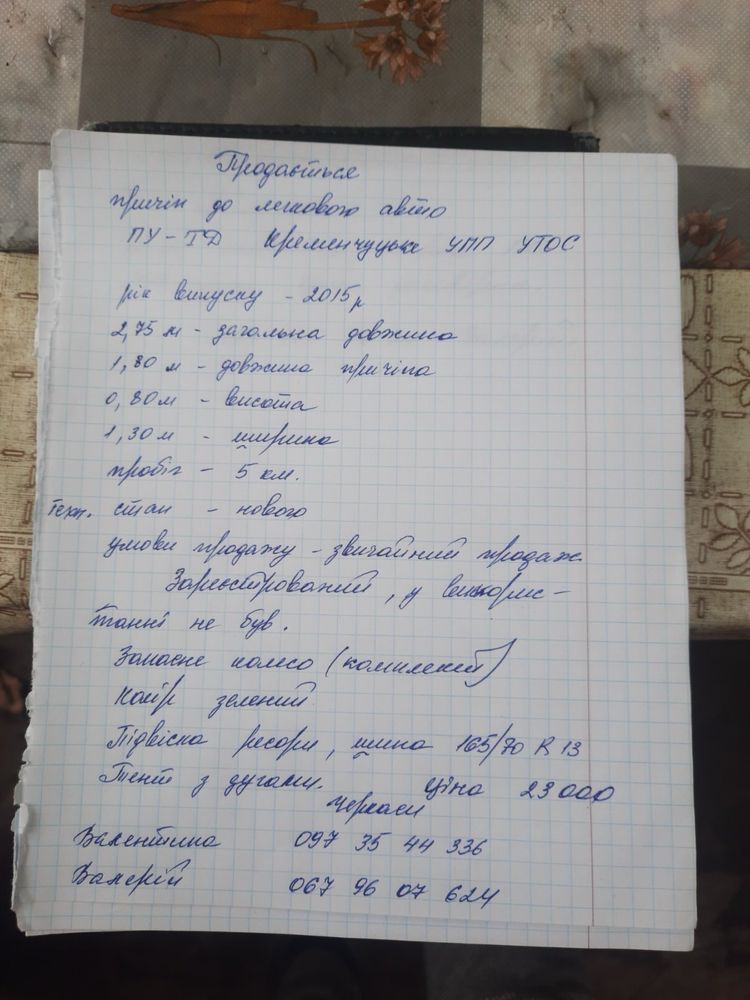 Продається
причіп до легкового авто
ПУ-ТД Кременчуцьке УПП УТОС
рік випуску - 2015р
2,75 м - загальна довжина
1,80 м - довжина причіпа
0,80м - висота
1,30м - ширина
пробіг - 5 км.
техн. стан - нового
умови продажу - звичайний продаж
Зареєстрований, у викорис-
танні не був.
Запасне колесо (комплект)
Колір зелений
Підвіска ресори, шина 165/70 R 13
Тент з дугами. ціна 23000
Черкаси
Валентина 097 35 44 336
Валерій 067 96 07 624